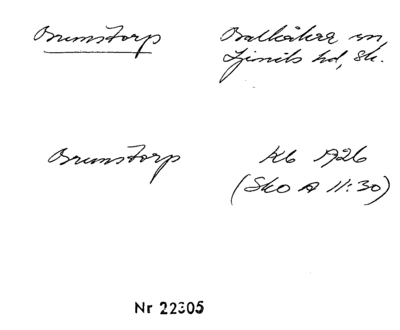 Brunstorp Balkåkra sn,
Ljunits hd, Sk.
Brunstorp Kb 1926
(Sko A II:30)
Nr 22305